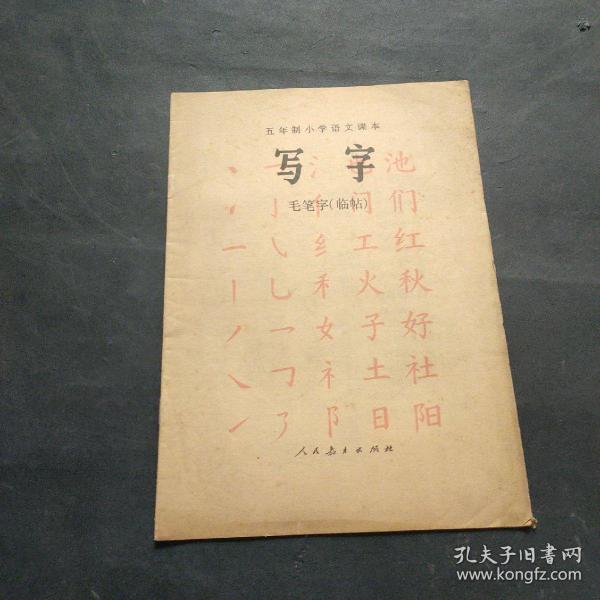 五年制小学语文课本
写字
毛笔字(临帖)
丶 一 氵 也 池
亅 亻 门 们
一 乀 纟 工 红
丨 乚 禾 火 秋
丿 乛 女 子 好
㇏ ㇆ 礻 土 社
㇀ 阝 日 阳
人民教育出版社
孔夫子旧書网
www.kongfz.com